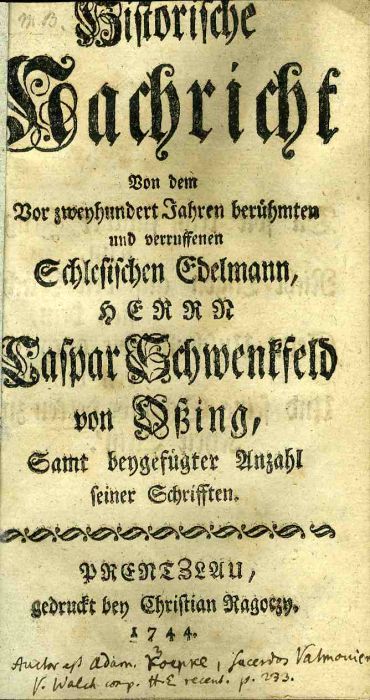 M B.
Historische
Nachricht
Von dem
Vor zweyhundert Jahren berühmten
und verruffenen
Schlesischen Edelmann,
HERRN
Caspar Schwenkfeld
von Oßing,
Samt beygefügter Anzahl
seiner Schrifften.
PRENTZLAU,
gedruckt bey Christian Ragoczy.
1744.
Auctor est Adam. Koepke, sacerdos
V. Walch comp. H. E. recent. p. 233.